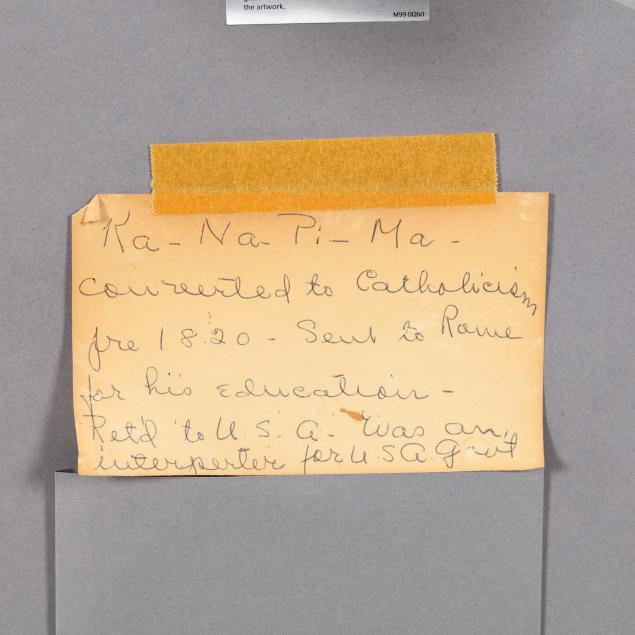 the artwork.
M99-01260
Ka-Na-Pi-Ma-
converted to Catholicism
pre 1820 - Sent to Rome
for his education -
Ret'd to U.S.A. Was an
interperter for U S A Gov't